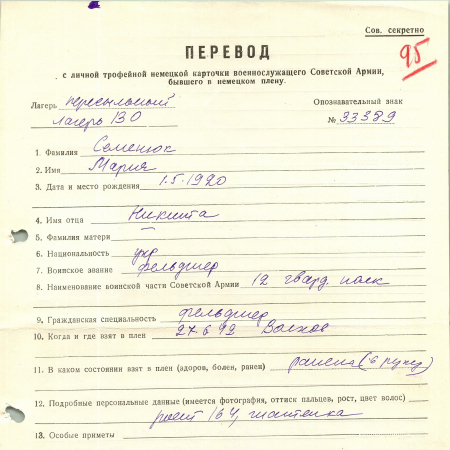 Сов. секретно
95
ПЕРЕВОД
с личной трофейной немецкой карточки военнослужащего Советской Армии,
бывшего в немецком плену.
Лагерь пересыльный
лагерь 130
Опознавательный знак
№ 33389
1. Фамилия Семенюк
2. Имя Мария
3. Дата и место рождения 1.5.1920
4. Имя отца Никита
5. Фамилия матери
6. Национальность укр
7. Воинское звание фельдшер
8. Наименование воинской части Советской Армии 12 гвард. полк
9. Гражданская специальность фельдшер
10. Когда и где взят в плен 27.6.42 Волхов
11. В каком состоянии взят в плен (здоров, болен, ранен) ранена (в руку)
12. Подробные персональные данные (имеется фотография, оттиск пальцев, рост, цвет волос)
рост 164, шатенка
13. Особые приметы